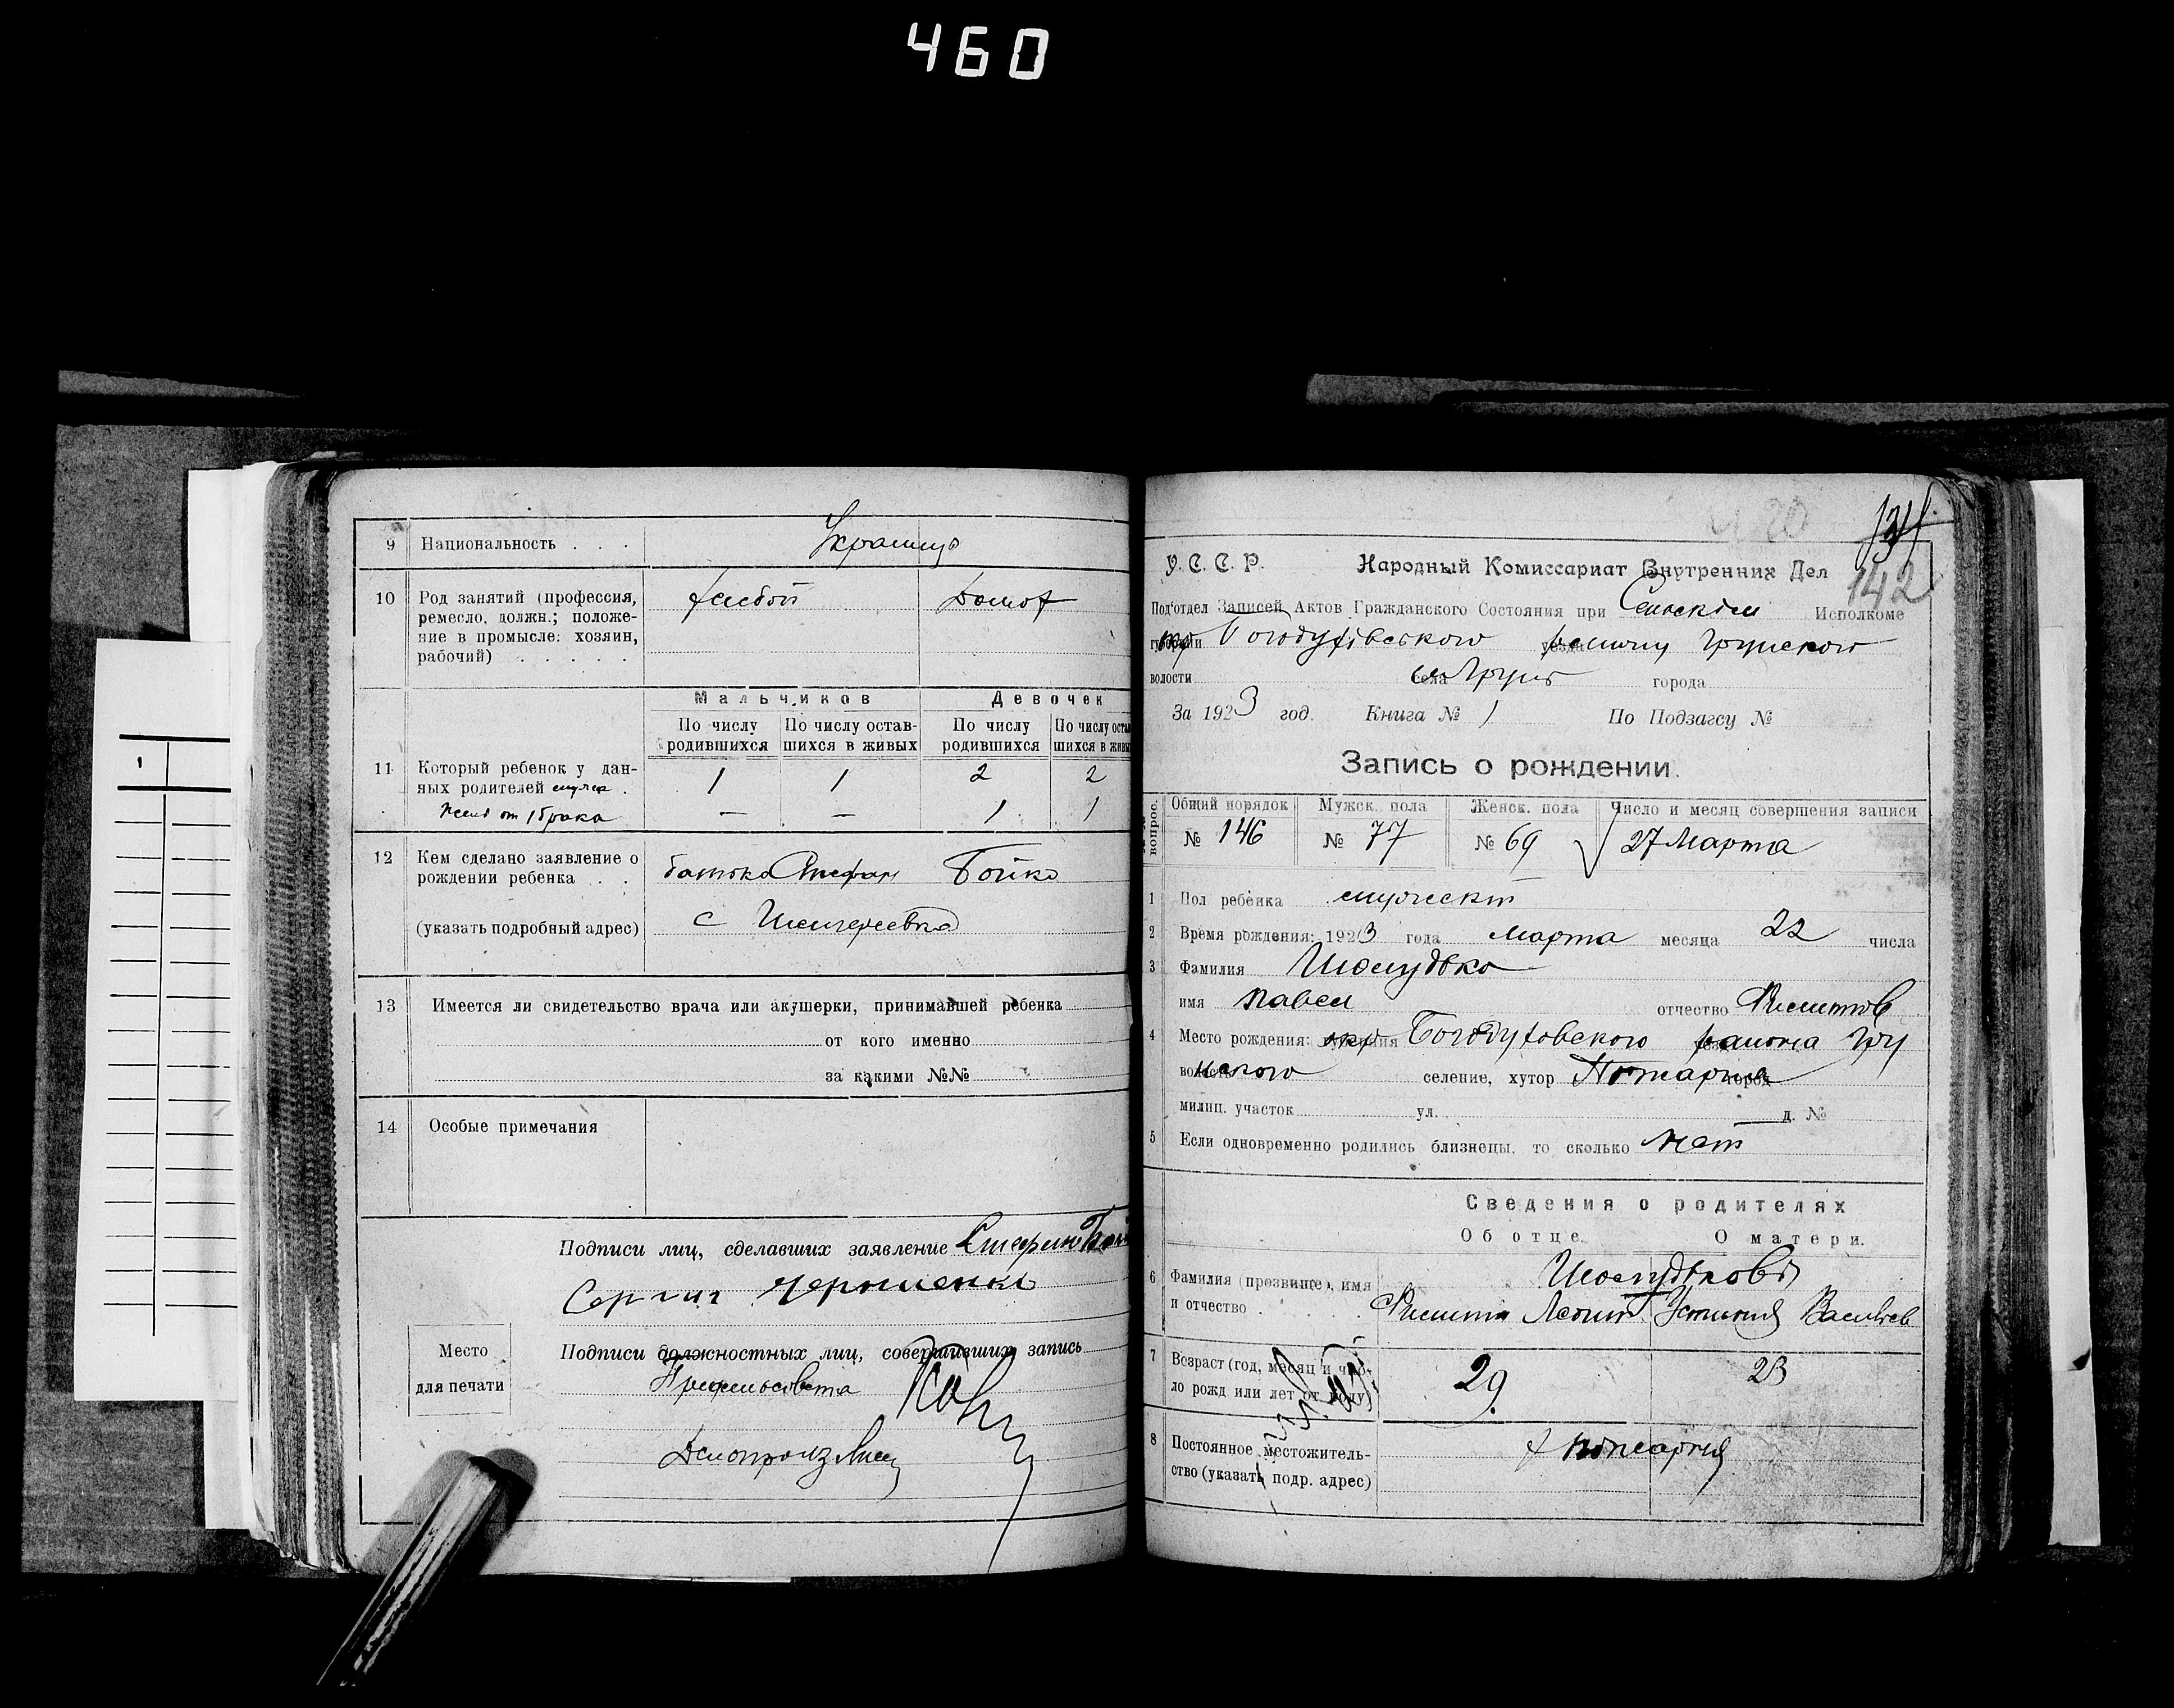 460
9 Национальность . . . Украинцы
10 Род занятий (профессия, ремесло, должн.; положение в промысле: хозяин, рабочий) . . . . .
Мальчиков Девочек
По числу родившихся По числу оставшихся в живых По числу родившихся По числу оста шихся в живы
11 Который ребенок у данных родителей 1 1 2 2
от 1 брака — — 1 1
12 Кем сделано заявление о рождении ребенка . . батько Стефан Бойко
(указать подробный адрес) с
13 Имеется ли свидетельство врача или акушерки, принимавшей ребенка
от кого именно
за какими №№
14 Особые примечания
Подписи лиц, сделавших заявление Стефан
Сергий
Место для печати
Подписи должностных лиц, совершивших запись
1
134
142
У. С. С. Р. Народный Комиссариат Внутренних Дел
Под'отдел Записей Актов Гражданского Состояния при Сельским Исполкоме
губернии уезда
волости села города
За 1923 год. Книга № 1 По Подзагсу №
Запись о рождении.
вопрос. Общий порядок Мужск. пола Женск. пола Число и месяц совершения записи
№ 146 № 77 № 69 27 Марта
1 Пол ребенка мужеский
2 Время рождения: 1923 года Марта месяца 22 числа
3 Фамилия Шолудько
имя Павел отчество Филипов
4 Место рождения: окр Богодуховского района Гру
нского селение, хутор Пожарня
милиц. участок ул. д. №
5 Если одновременно родились близнецы, то сколько Нет
Сведения о родителях
Об отце. О матери.
6 Фамилия (прозвище), имя и отчество . . . Шолудьковы
Устиния Васильев
7 Возраст (год, месяц и число рожд или лет от роду) 29 23
8 Постоянное местожительство (указать подр. адрес) х Пожарня